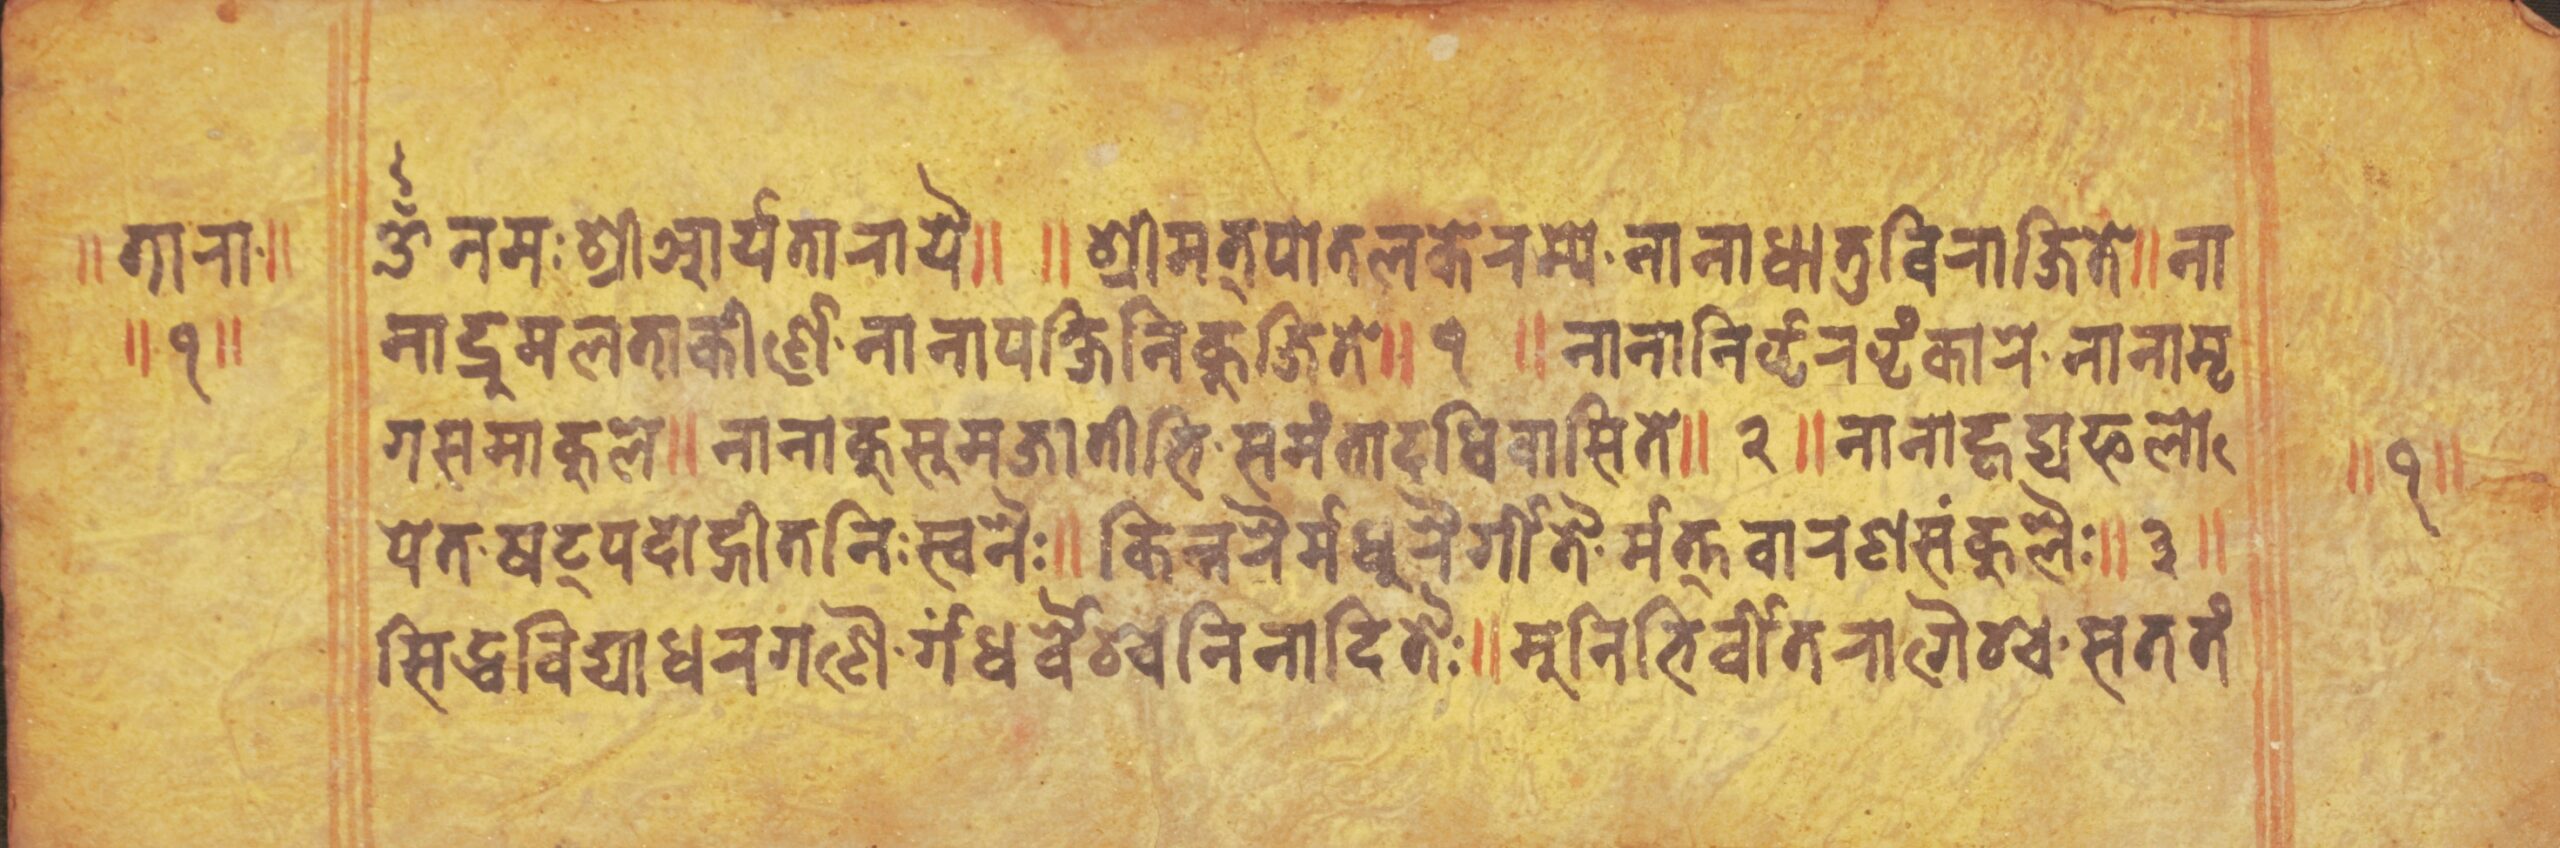 ॥ तारा ॥ ॐ नमः श्रीआर्यतारायै॥ ॥ श्रीमत्पोतलके रम्ये नानाधातुविराजिते॥ ना
॥ १ ॥ नाद्रुमलताकीर्णे नानापक्षिनिकुजिते॥ १ ॥ नानानिर्झरझंकारे नानामृ
गसमाकुले॥ नानाकुसुमजातीभि समंतादधिवासिते॥ २ ॥ नानाहृद्यफलो ॥ १ ॥
पेत षट्पदोद्गीतनिःस्वनैः॥ किन्नरैर्मधुरैर्गीतै र्मत्तवारणसंकुलैः॥ ३ ॥
सिद्धविद्याधरगणै र्गंधर्वैश्च निनादितैः॥ मुनिभिर्वीतरागैश्च सततं